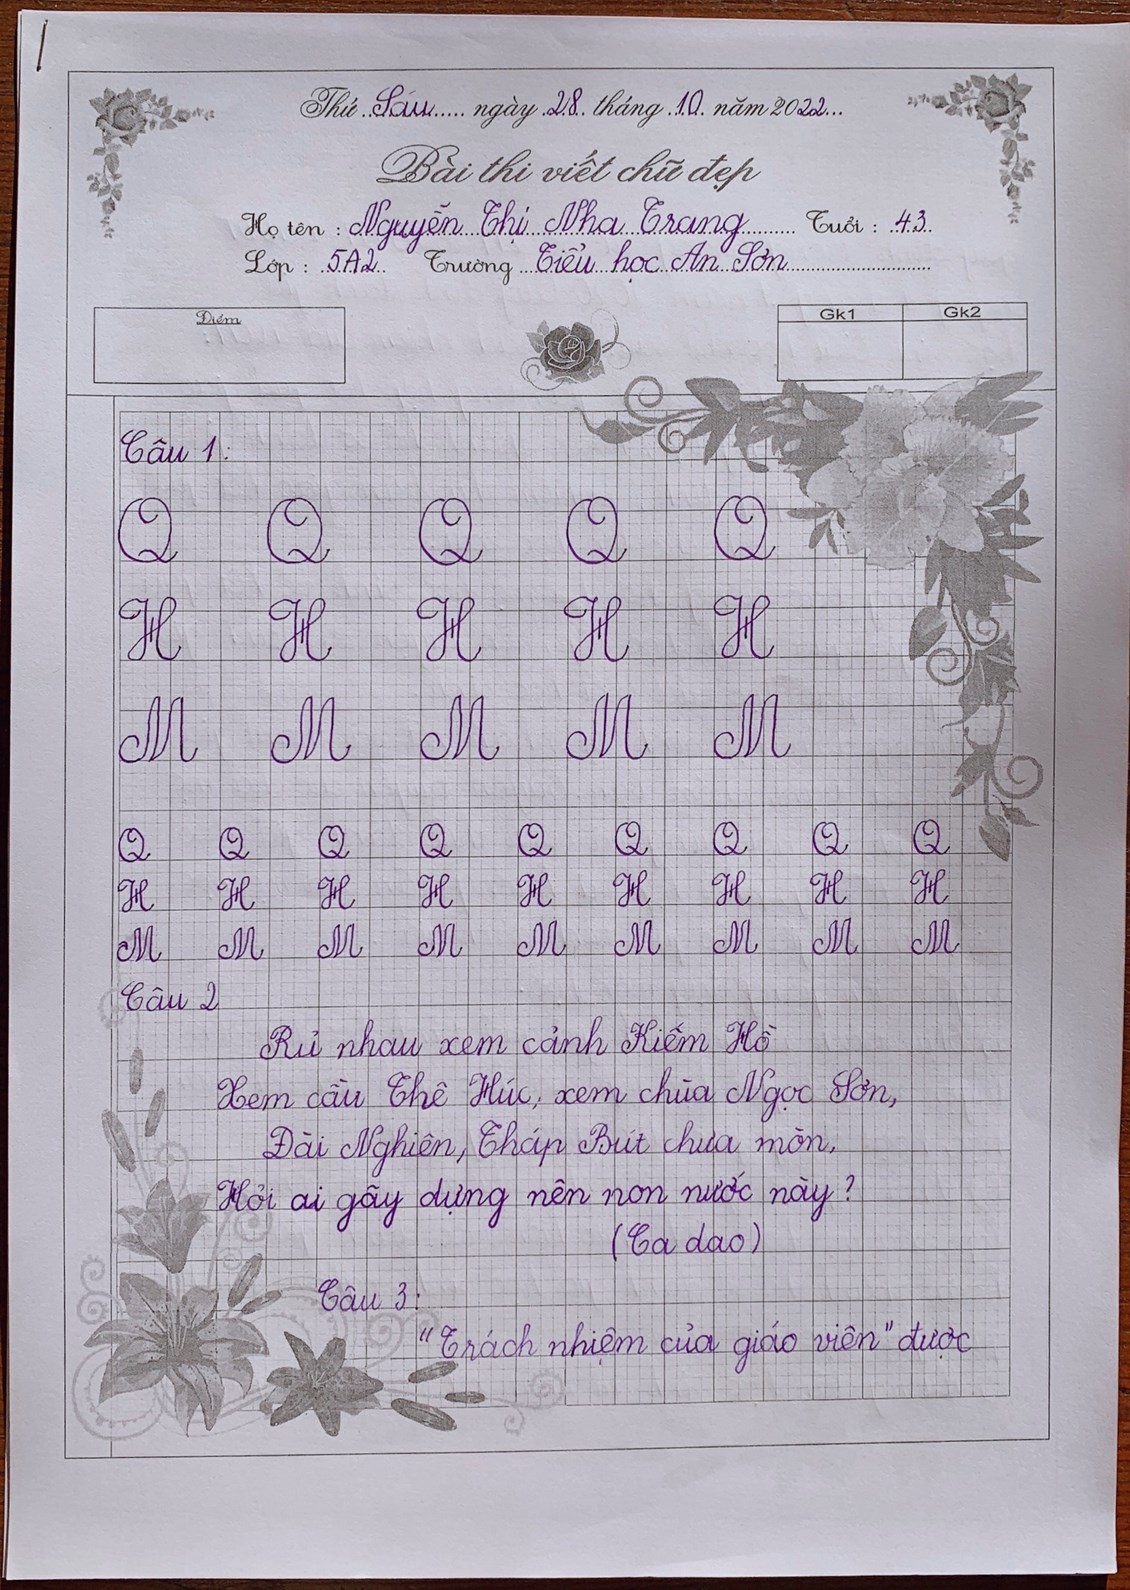 Thứ Sáu ngày 28 tháng 10 năm 2022
Bài thi viết chữ đẹp
Họ tên : Nguyễn Thị Nha Trang Tuổi : 43
Lớp : 5A2 Trường Tiểu học An Sơn
Điểm
Gk1 Gk2
Câu 1:
Q Q Q Q Q
H H H H H
M M M M M
Q Q Q Q Q Q Q Q Q
H H H H H H H H H
M M M M M M M M M
Câu 2
Rủ nhau xem cảnh Kiếm Hồ
Xem cầu Thê Húc, xem chùa Ngọc Sơn,
Đài Nghiên, Tháp Bút chưa mòn,
Hỏi ai gây dựng nên non nước này?
(Ca dao)
Câu 3:
"Trách nhiệm của giáo viên" được